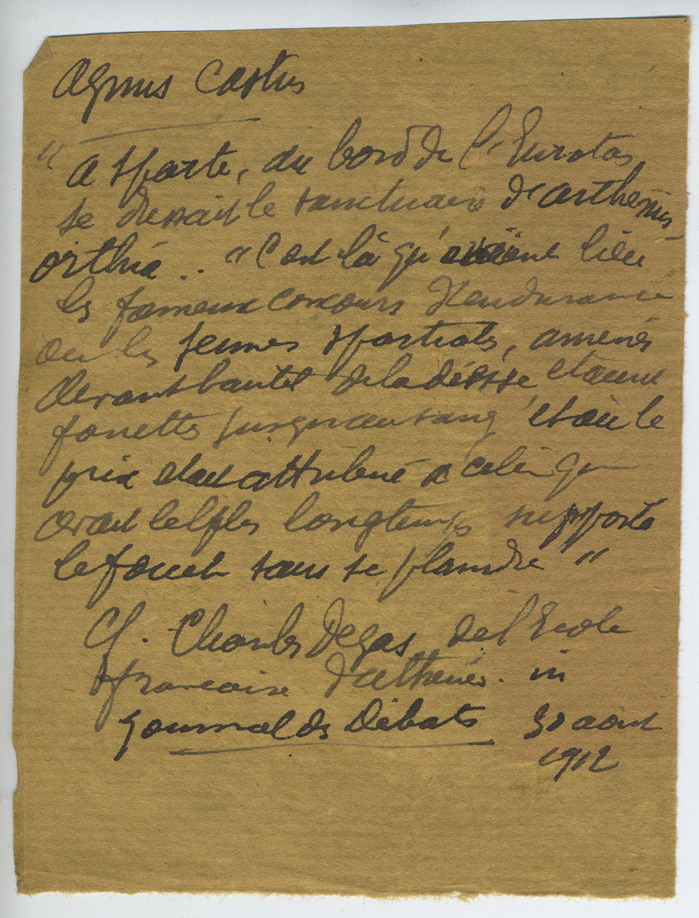 Agnus Castus
" A Sparte, au bord de l'Eurotas
se dressait le sanctuaire d'Arthémis
Orthia .. " C'est là qu'avaient lieu
les fameux concours d'endurance
où les jeunes spartiates, amenés
devant l'autel de la déesse, étaient
fouettés jusqu'au sang et où le
prix était attribué à celui qui
avait le plus longtemps supporté
le fouet sans se plaindre "
Cf. Charles Degas de l'Ecole
française d'Athènes. in
Journal des Débats 30 août
1912